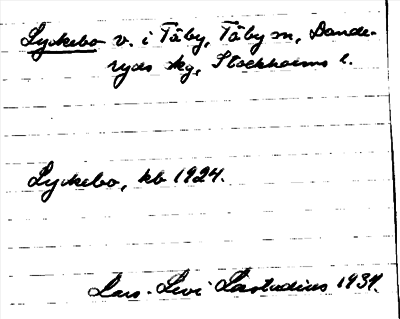 Lyckebo v. i Täby, Täby sn, Dande-
ryds skg, Stockholms l.
Lyckebo, kb 1924.
Lars-Levi Læstadius 1934.